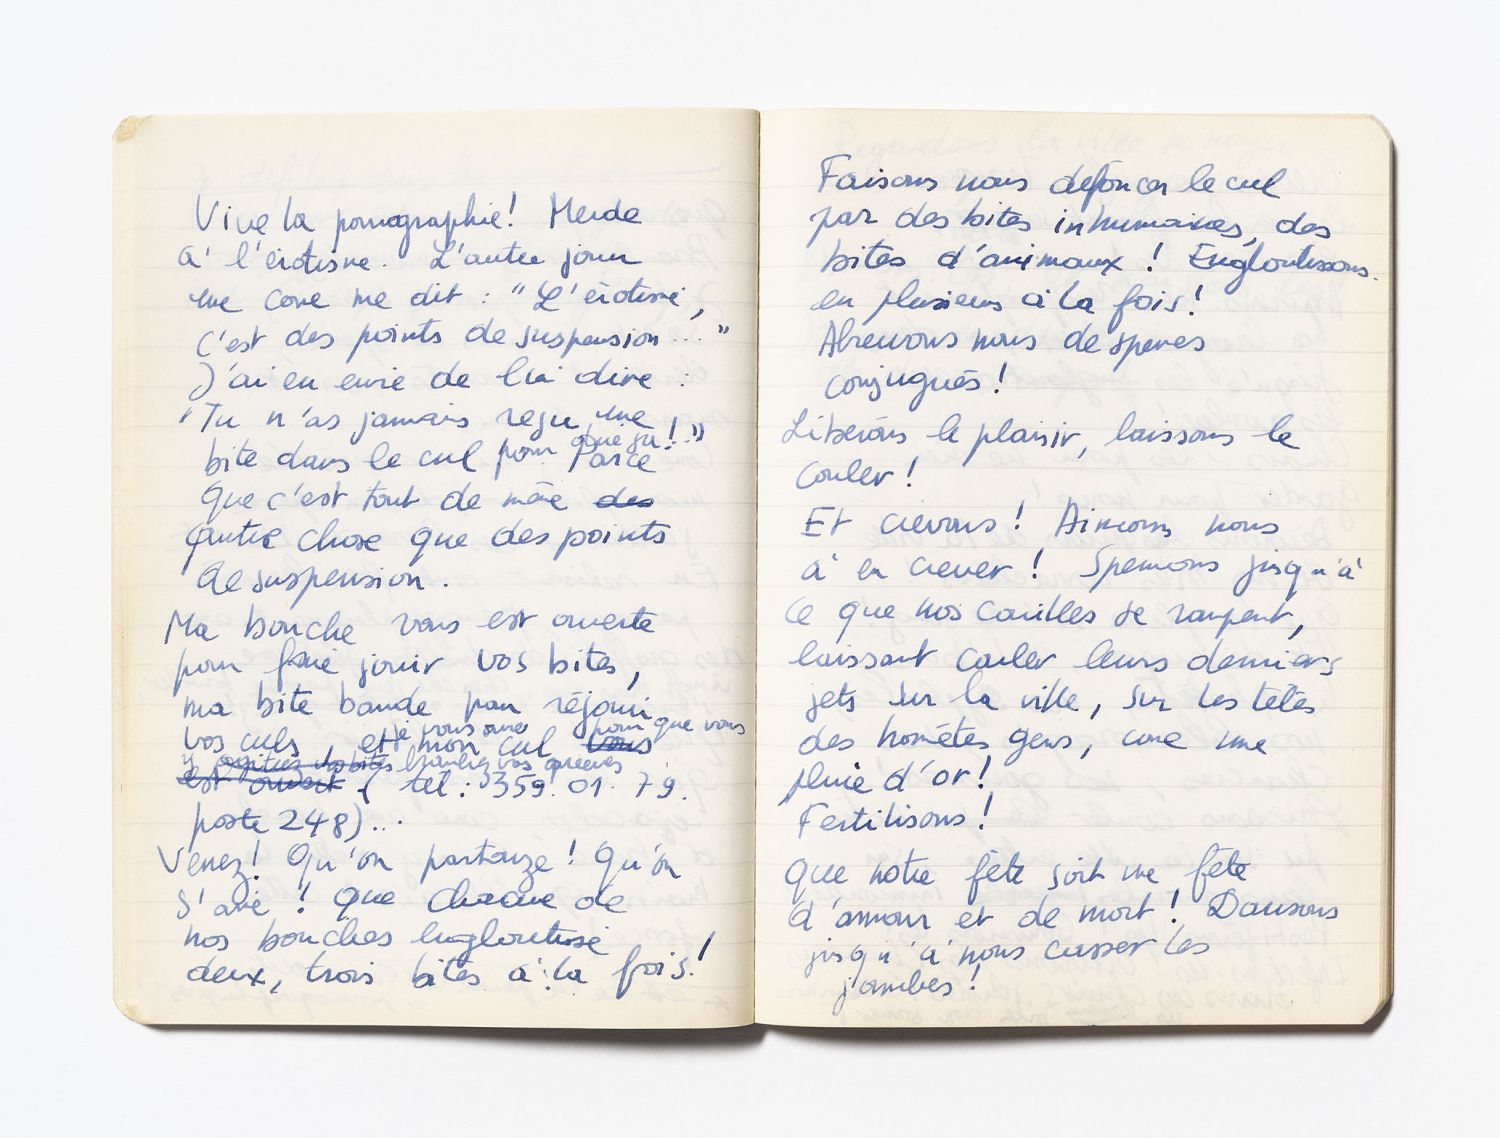 Vive la pornographie! Merde
à l'érotisme. L'autre jour
une conne me dit : "L'érotisme,
c'est des points de suspension..."
J'ai eu envie de lui dire :
"Tu n'as jamais reçu une
bite dans le cul pour dire ça!" Parce
que c'est tout de même des
autre chose que des points
de suspension.
Ma bouche vous est ouverte
pour faire jouir vos bites,
ma bite bande pour réjouir
je vous ouvre pour que vous
vos culs, et mon cul vous
y branliez vos
est ouvert (tél : 359.01.79.
poste 248)...
Venez! Qu'on partouze! Qu'on
s'aime! Que chacune de
nos bouches engloutisse
deux, trois bites à la fois!
Faisons nous défoncer le cul
par des bites inhumaines, des
bites d'animaux! Engloutissons-
en plusieurs à la fois!
Abreuvons nous de spermes
conjugués!
Libérons le plaisir, laissons le
couler!
Et crevons! Aimons nous
à en crever! Spermons jusqu'à
ce que nos couilles se rompent,
laissant couler leurs derniers
jets sur la ville, sur les têtes
des honnêtes gens, comme une
pluie d'or!
Fertilisons!
Que notre fête soit une fête
d'amour et de mort! Dansons
jusqu'à nous casser les
jambes!